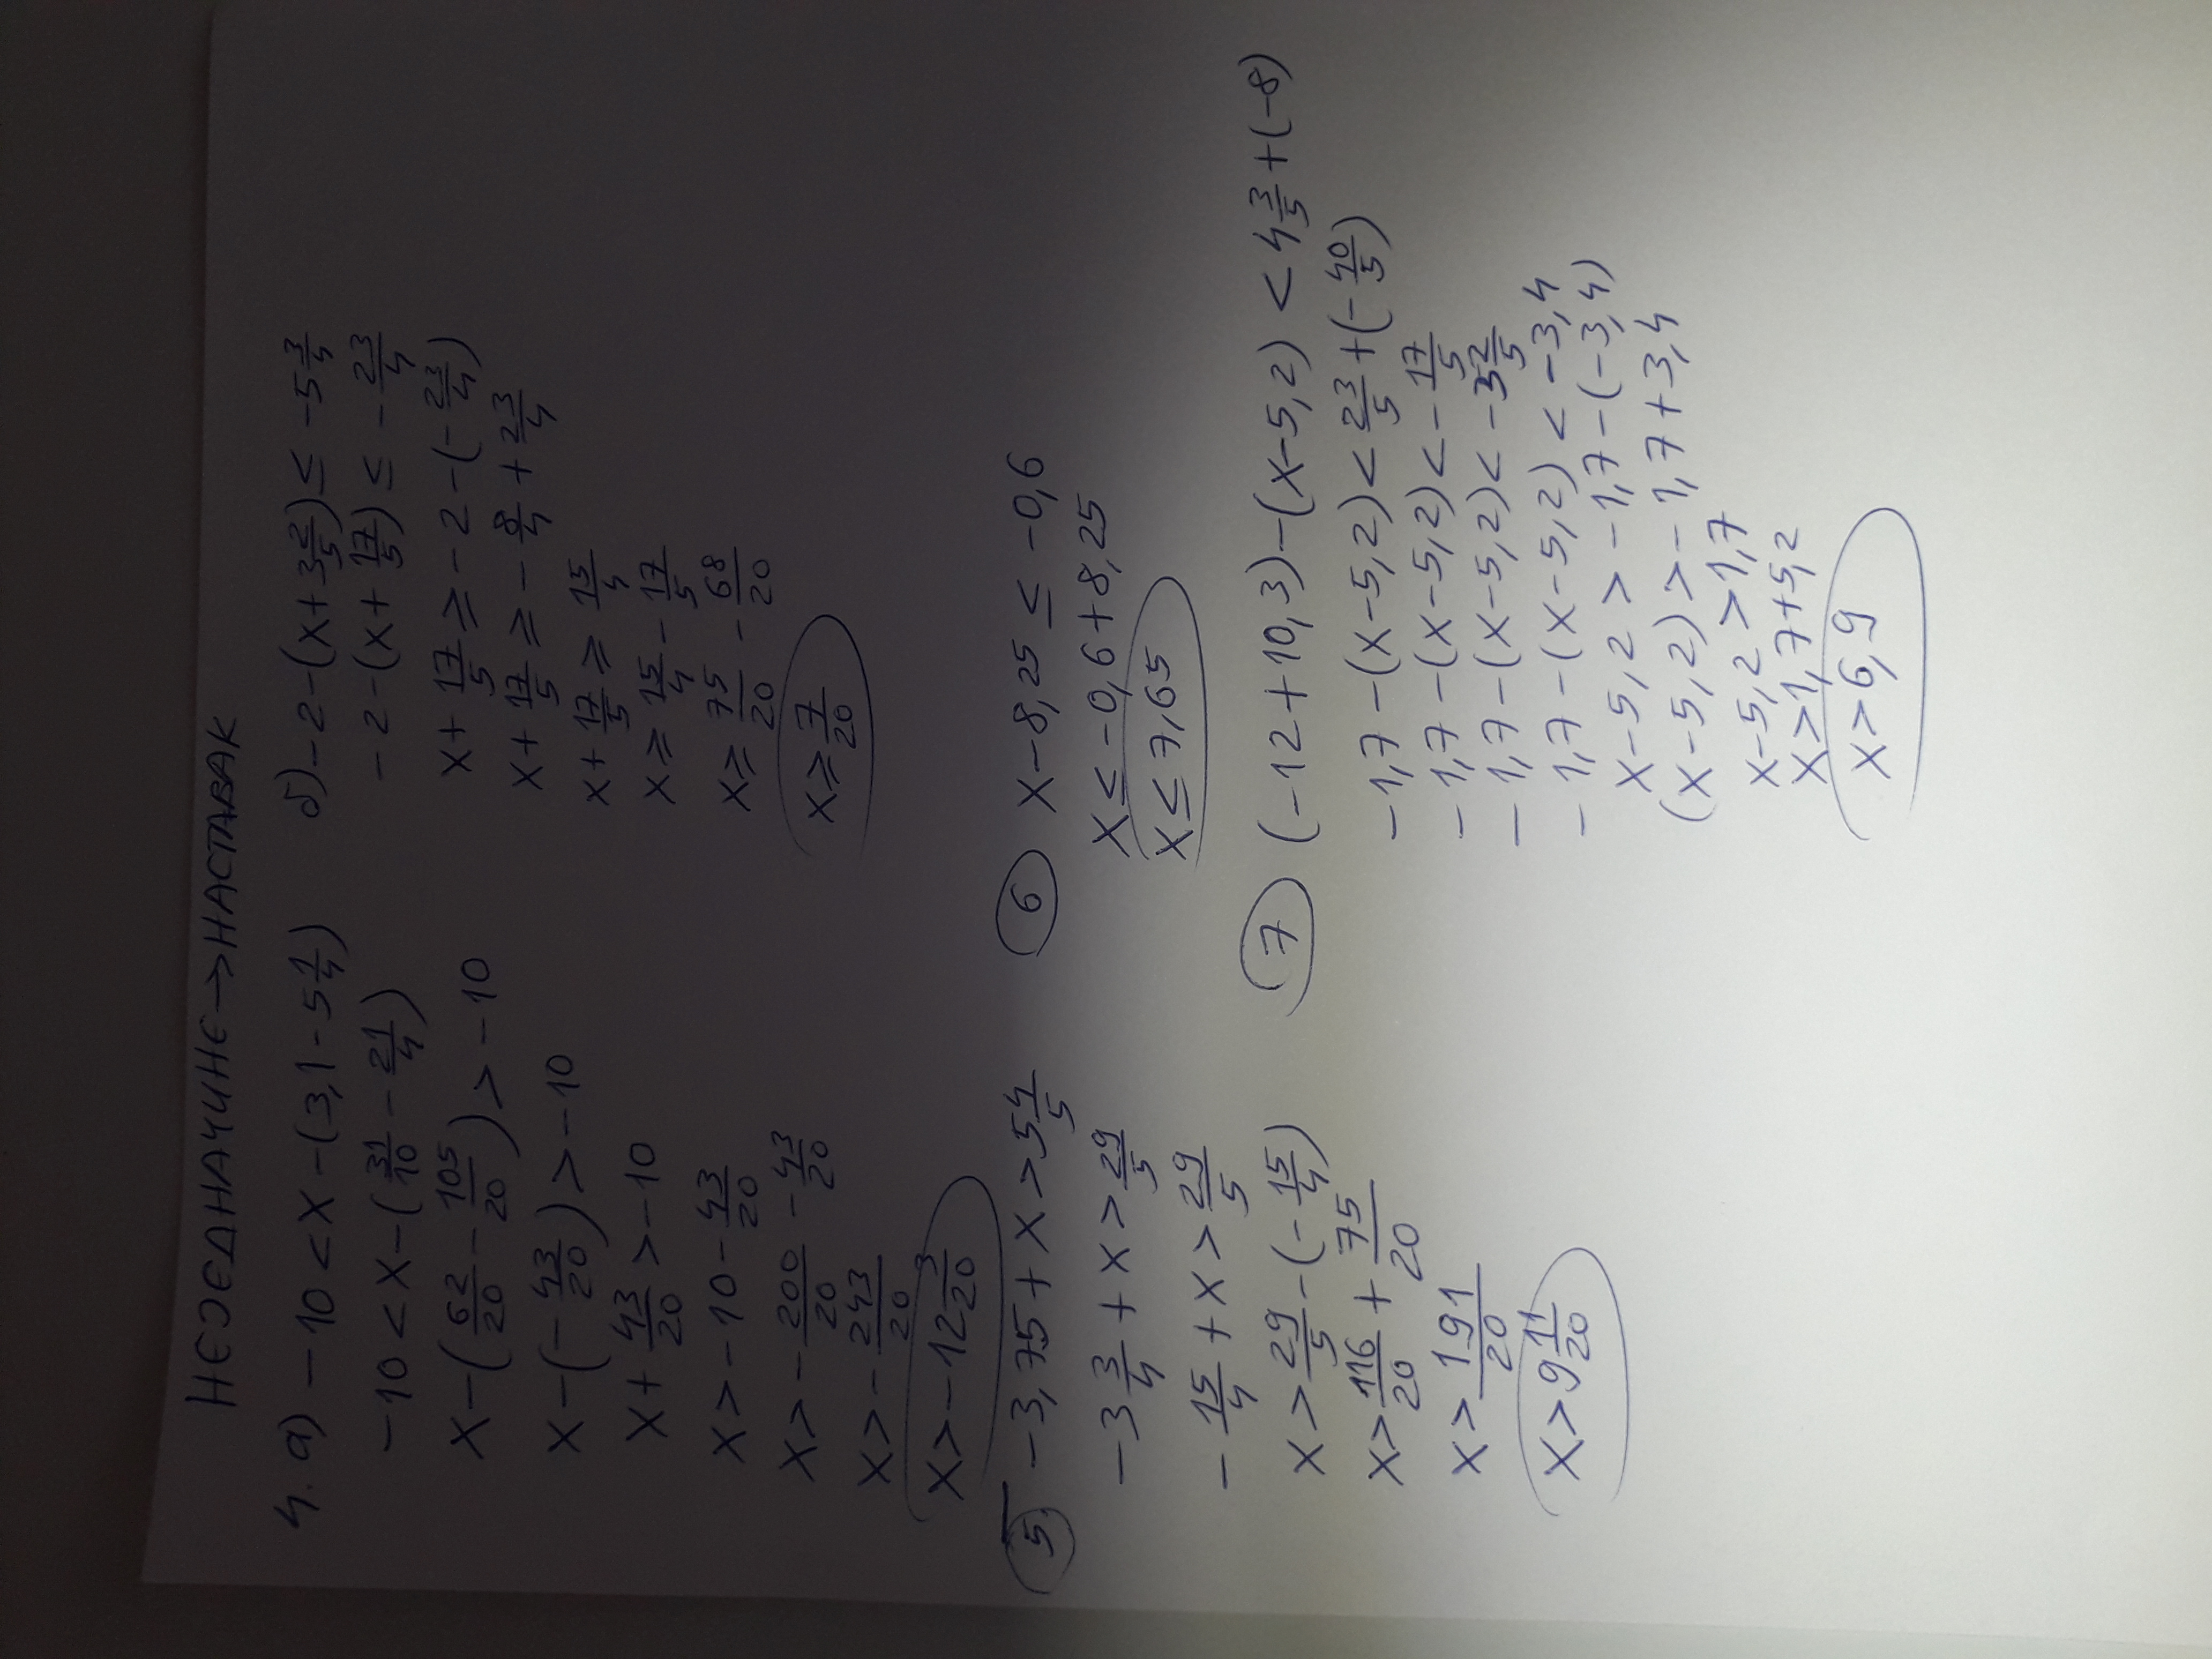 НЕЈЕДНАЧИНЕ → НАСТАВАК
4. а) -10 < x - (3,1 - 5 1/4)
-10 < x - (31/10 - 21/4)
x - (62/20 - 105/20) > -10
x - (-43/20) > -10
x + 43/20 > -10
x > -10 - 43/20
x > -200/20 - 43/20
x > -243/20
x > -12 3/20
б) -2 - (x + 3 2/5) ≤ -5 3/4
-2 - (x + 17/5) ≤ -23/4
x + 17/5 ≥ -2 - (-23/4)
x + 17/5 ≥ -8/4 + 23/4
x + 17/5 ≥ 15/4
x ≥ 15/4 - 17/5
x ≥ 75/20 - 68/20
x ≥ 7/20
5. -3,75 + x > 5 4/5
-3 3/4 + x > 29/5
-15/4 + x > 29/5
x > 29/5 - (-15/4)
x > 116/20 + 75/20
x > 191/20
x > 9 11/20
6 x - 8,25 ≤ -0,6
x ≤ -0,6 + 8,25
x ≤ 7,65
7 (-12 + 10,3) - (x - 5,2) < 4 3/5 + (-8)
-1,7 - (x - 5,2) < 23/5 + (-40/5)
-1,7 - (x - 5,2) < -17/5
-1,7 - (x - 5,2) < -3 2/5
-1,7 - (x - 5,2) < -3,4
x - 5,2 > -1,7 - (-3,4)
(x - 5,2) > -1,7 + 3,4
x - 5,2 > 1,7
x > 1,7 + 5,2
x > 6,9